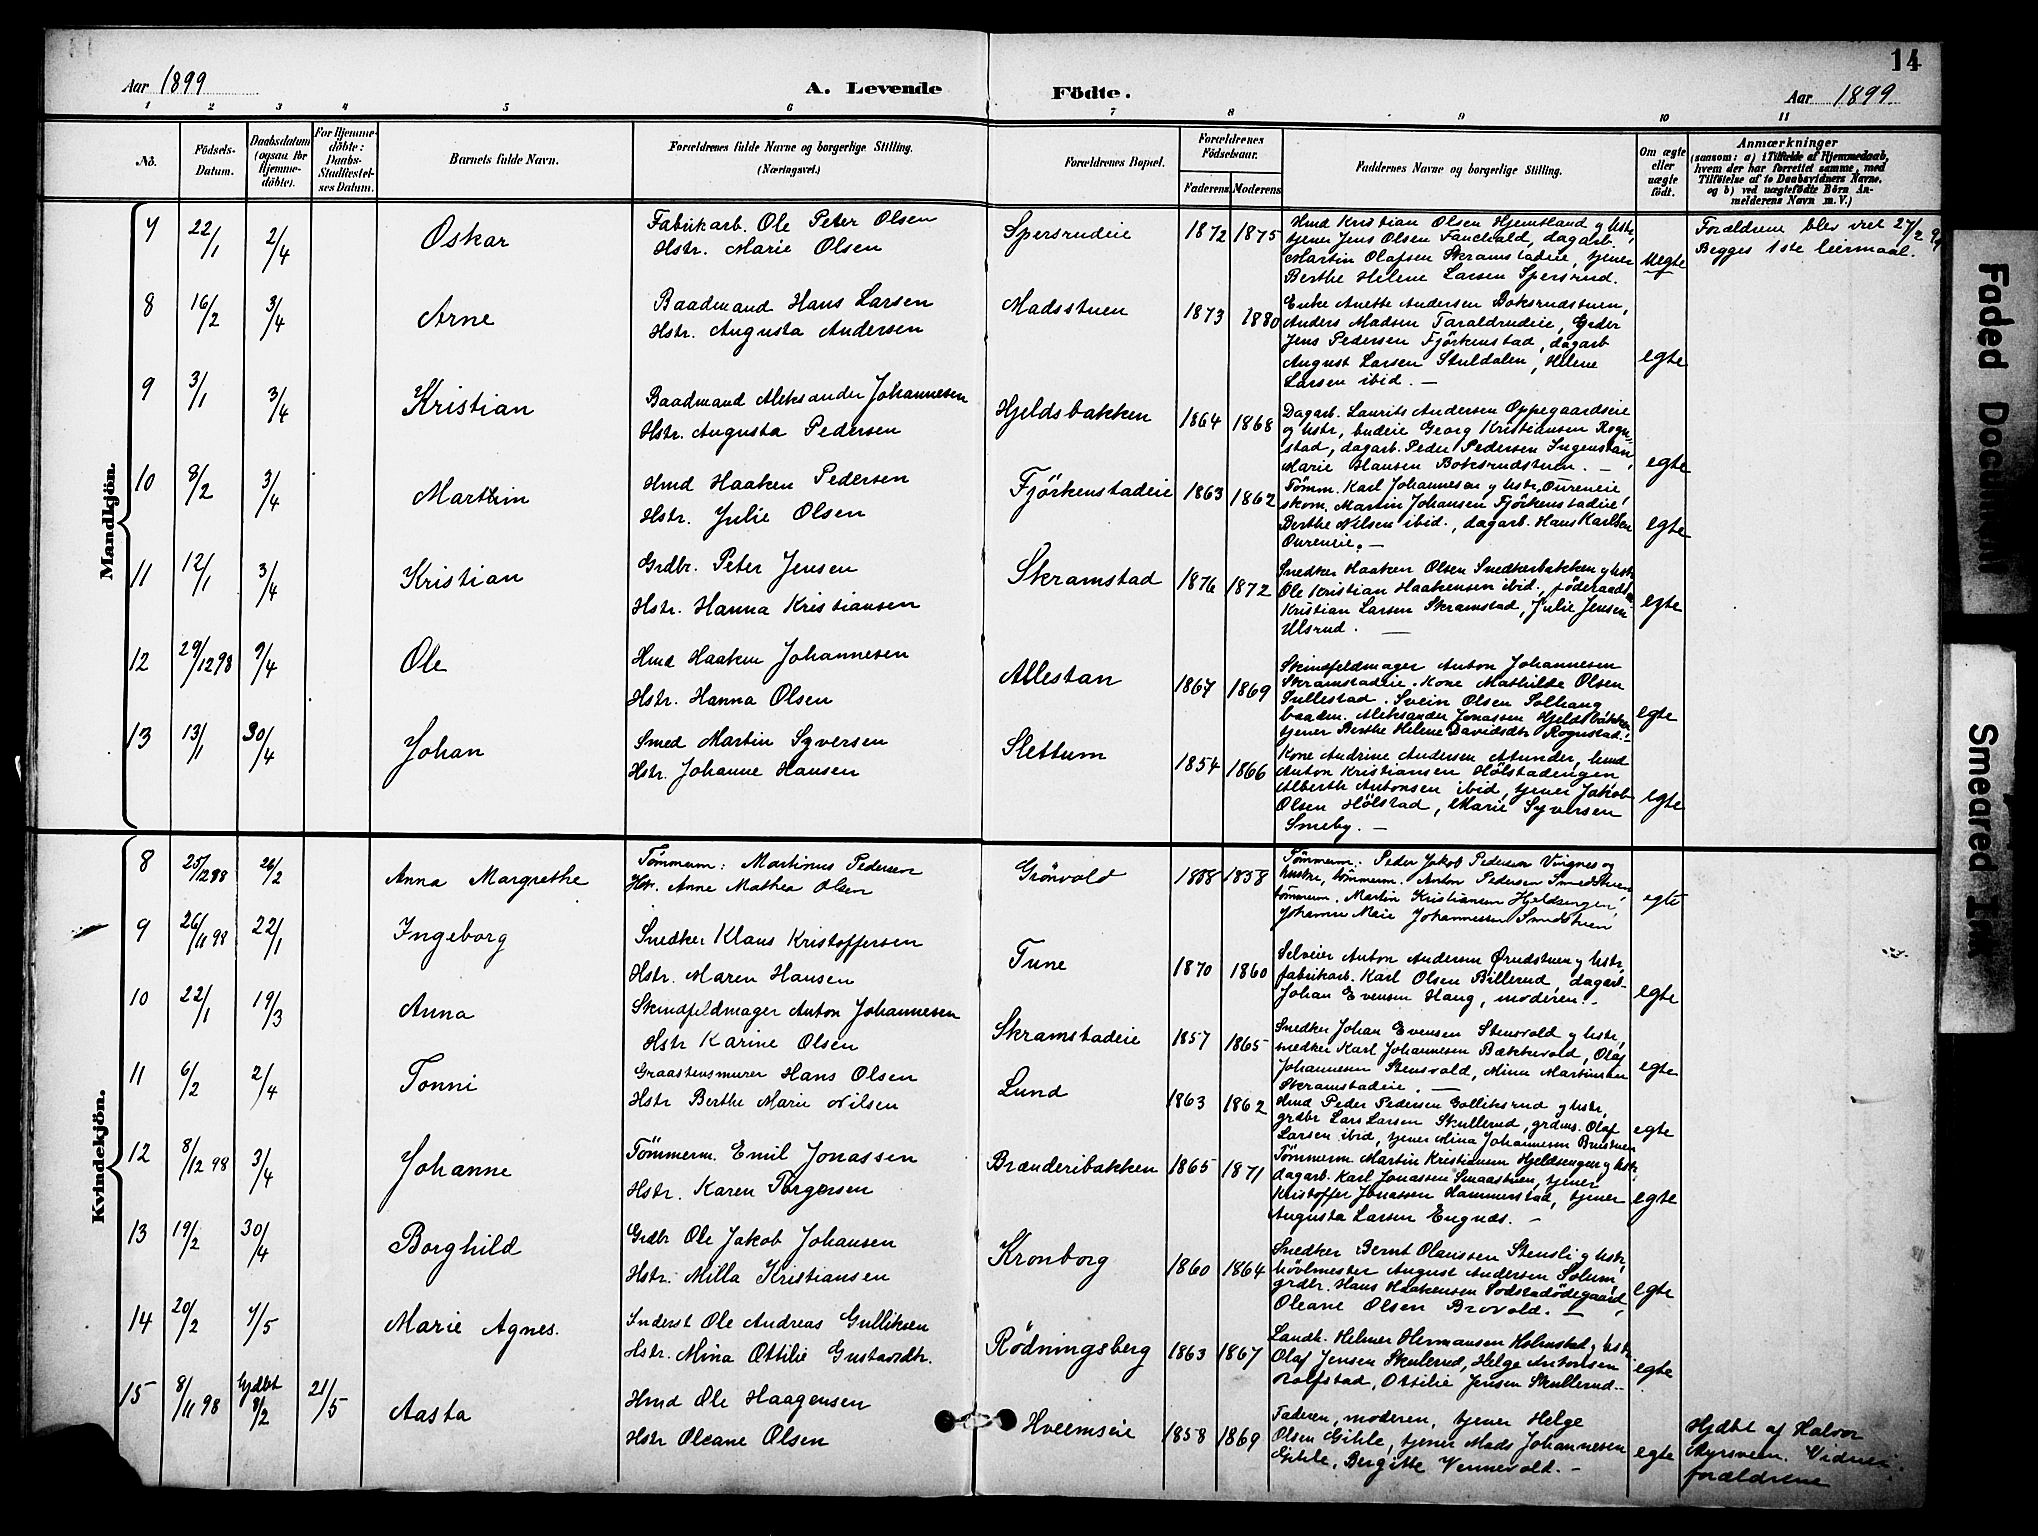 14
Aar 1899
A. Levende Födte.
Aar 1899
1 2 3 4 5 6 7 8 9 10 11
No.
Födsels-Datum.
Daabsdatum (ogsaa for Hjemme-döbte).
For Hjemme-döbte: Daabs-Stadfæstel-ses Datum.
Barnets fulde Navn.
Forældrenes fulde Navne og borgerlige Stilling.
(Næringsvei.)
Forældrenes Bopæl.
Forældrenes Födselsaar.
Faderens Moderens
Faddernes Navne og borgerlige Stilling.
Om ægte eller uægte födt.
Anmærkninger
(saasom: a) i Tilfælde af Hjemmedaab,
hvem der har forrettet samme, med
Tilföielse af to Daabsvidners Navne,
og b) ved uægtefödte Börn An-
melderens Navn m. V.)
Mandkjön.
7 22/1 2/4 Oskar
Fabrikarb. Ole Peter Olsen
Hstr. Marie Olsen
Spersrudeie 1872 1875
Hmd Kristian Olsen Hjemtland y hstr,
tjener Jens Olsen dagarb.
Martin Olafsen Skramstadeie, tjener
Berthe Helene Larsen Spersrud.
Uegte
Forældrene blev viet 27/2 99
Begges 1ste leiermaal.
8 16/2 3/4 Arne
Baadmand Hans Larsen
Hstr. Augusta Andersen
Madsstuen 1873 1880
Enke Anette Andersen Boksrudstuen,
Anders Madsen Taraldrudeie, Grdbr
Jens Pedersen Fjörkenstad, dagarb
August Larsen Stuldalen, Helene
Larsen ibid. —
egte
9 3/1 3/4 Kristian
Baadmand Aleksander Johannesen
Hstr. Augusta Pedersen
Hjeldsbakken 1864 1868
Dagarb. Laurits Andersen Oppegaardseie
og hstr, Georg Kristiansen Rogn-
stad, dagarb. Peder Pedersen Ingenstun,
Marie Hansen Boksrudstuen. —
egte
10 8/2 3/4 Marthin
Hmd Haaken Pedersen
Hstr. Julie Olsen
Fjörkenstadeie 1863 1862
Tömm. Karl Johannesen y hstr. Oureneie,
skom. Martin Johansen Fjörkenstadeie,
Berthe Nilsen ibid., dagarb. Hans Karlsen
Oureneie. —
egte
11 12/1 3/4 Kristian
Grdbr. Peter Jensen
Hstr. Hanna Kristiansen
Skramstad 1876 1872
Snedker Haaken Olsen Snedkerbakken y hstr
Ole Kristian Haakensen ibid., föderaadsm.
Kristian Larsen Skramstad, Julie Jensen
Ulsrud. —
egte
12 29/12 98 9/4 Ole
Hmd Haaken Johannesen
Hstr. Hanna Olsen
Allestan 1867 1869
Skindfeldmager Anton Johannesen
Skramstadeie. Kone Mathilde Olsen
Sullestad. Svein Olsen Solhaug
baadm. Aleksander Jonassen Hjeldsbakken
tjener Berthe Helene Davidsdtr Rognstad.
egte
13 13/1 30/4 Johan
Smed Martin Syversen
Hstr. Johanne Hansen
Slettum 1854 1866
Kone Andrine Andersen Atunder, hmd
Anton Kristiansen Hölstadengen
Alberth Antonsen ibid, tjener Jakob
Olsen Hölstad, Marie Syversen
Smeby. —
egte
Kvindekjön.
8 25/12 98 26/2 Anna Margrethe
Tömmerm: Martinus Pedersen
Hst. Anne Mathea Olsen
Grönvold 1858
Tömmerm. Peder Jakob Pedersen Vingnes og
hustru, tömmerm. Anton Pedersen Smedstuen,
tömmerm. Martin Kristiansen Hjeldsengen,
Johanne Marie Johannessen Smedstuen
egte
9 26/11 98 22/1 Ingeborg
Snedker Klaus Kristoffersen
Hstr. Maren Hansen
Tune 1870 1860
Selveier Anton Andersen y hstr,
fabrikarb. Karl Olsen Billerud, dagarb.
Johan Evensen Haug, moderen. —
egte
10 22/1 19/3 Anna
Skindfeldmager Anton Johannesen
Hstr Karine Olsen
Skramstadeie 1857 1865
Snedker Johan Evensen Stensvold y hstr,
snedker Karl Johannesen Bækkevold, Olaf
Johannesen Stensvold, Mina Martinsen
Skramstadeie. —
egte
11 6/2 2/4 Tonni
Graastensmurer Hans Olsen
Hstr Berthe Marie Nilsen
Lund 1863 1862
Hmd Peder Pedersen Golliksrud y hstr,
grdbr Lars Larsen Skullerud, grdms. Olaf
Larsen ibid, tjener Mina Johannesen
egte
12 8/12 98 3/4 Johanne
Tömmerm. Emil Jonassen
Hstr. Karen Torgersen
Brænderibakken 1865 1871
Tömmerm. Martin Kristiansen Hjeldsengen y hstr
dagarb. Karl Jonassen Smaastuen, tjener
Kristoffer Jonassen Hammerstad, tjener
Augusta Larsen Engnæs. —
egte
13 19/2 30/4 Borghild
Grdbr Ole Jakob Johansen
Hstr. Milla Kristiansen
Kronborg 1860 1864
Snedker Bernt Olaussen Stensli y hstr,
hövlmester August Andersen Solum,
grdbr. Hans Haakensen Sodstadödegaard,
Oleane Olsen Brovold. —
egte
14 20/2 7/5 Marie Agnes.
Inderst Ole Andreas Gulliksen
Hstr. Mina Ottilie Gustavsdtr.
Rödningsberg 1863 1867
Landh. Helmer Hermansen Holmstad y hstr
Olaf Jensen Skullerud, Helge Antonsen
Rolfstad, Ottilie Jensen Skullerud. —
egte
15 8/11 98 Hjdbt 8/2 21/5 Aasta
Hmd Ole Haagensen
Hstr Oleane Olsen
Hveemseie 1858 1869
Faderen, moderen, tjener Helge
Olsen Gihle, tjener Mads Johannesen
Gihle, Bergitte Vennevold. —
egte
Hjdbt af Halvor
Vidner:
forældrene
Faded Document
Smeared Ink